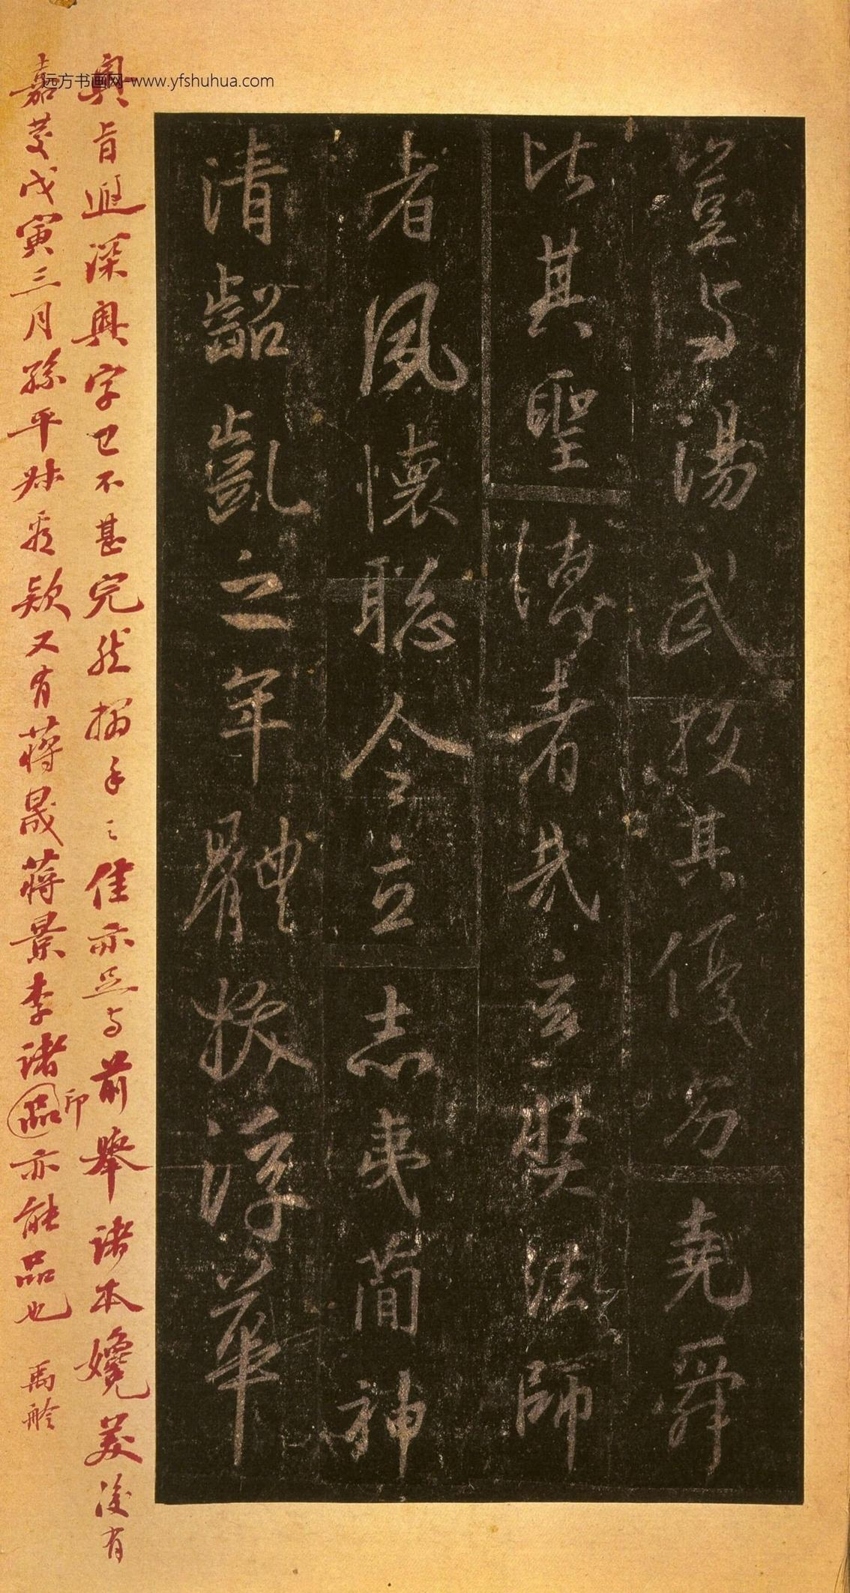 豈与湯武挍其優劣堯舜
比其聖德者哉玄奘法師
者夙懷聰令立志夷簡神
清齠齔之年體拔浮華
奧旨遐深奧字已不甚完然搨手之佳亦足与前舉諸本媲美後有
嘉慶戊寅三月孫平叔看款又有蔣晟蔣景李諸印亦能品也 禹舲
远方书画网-www.yfshuhua.com